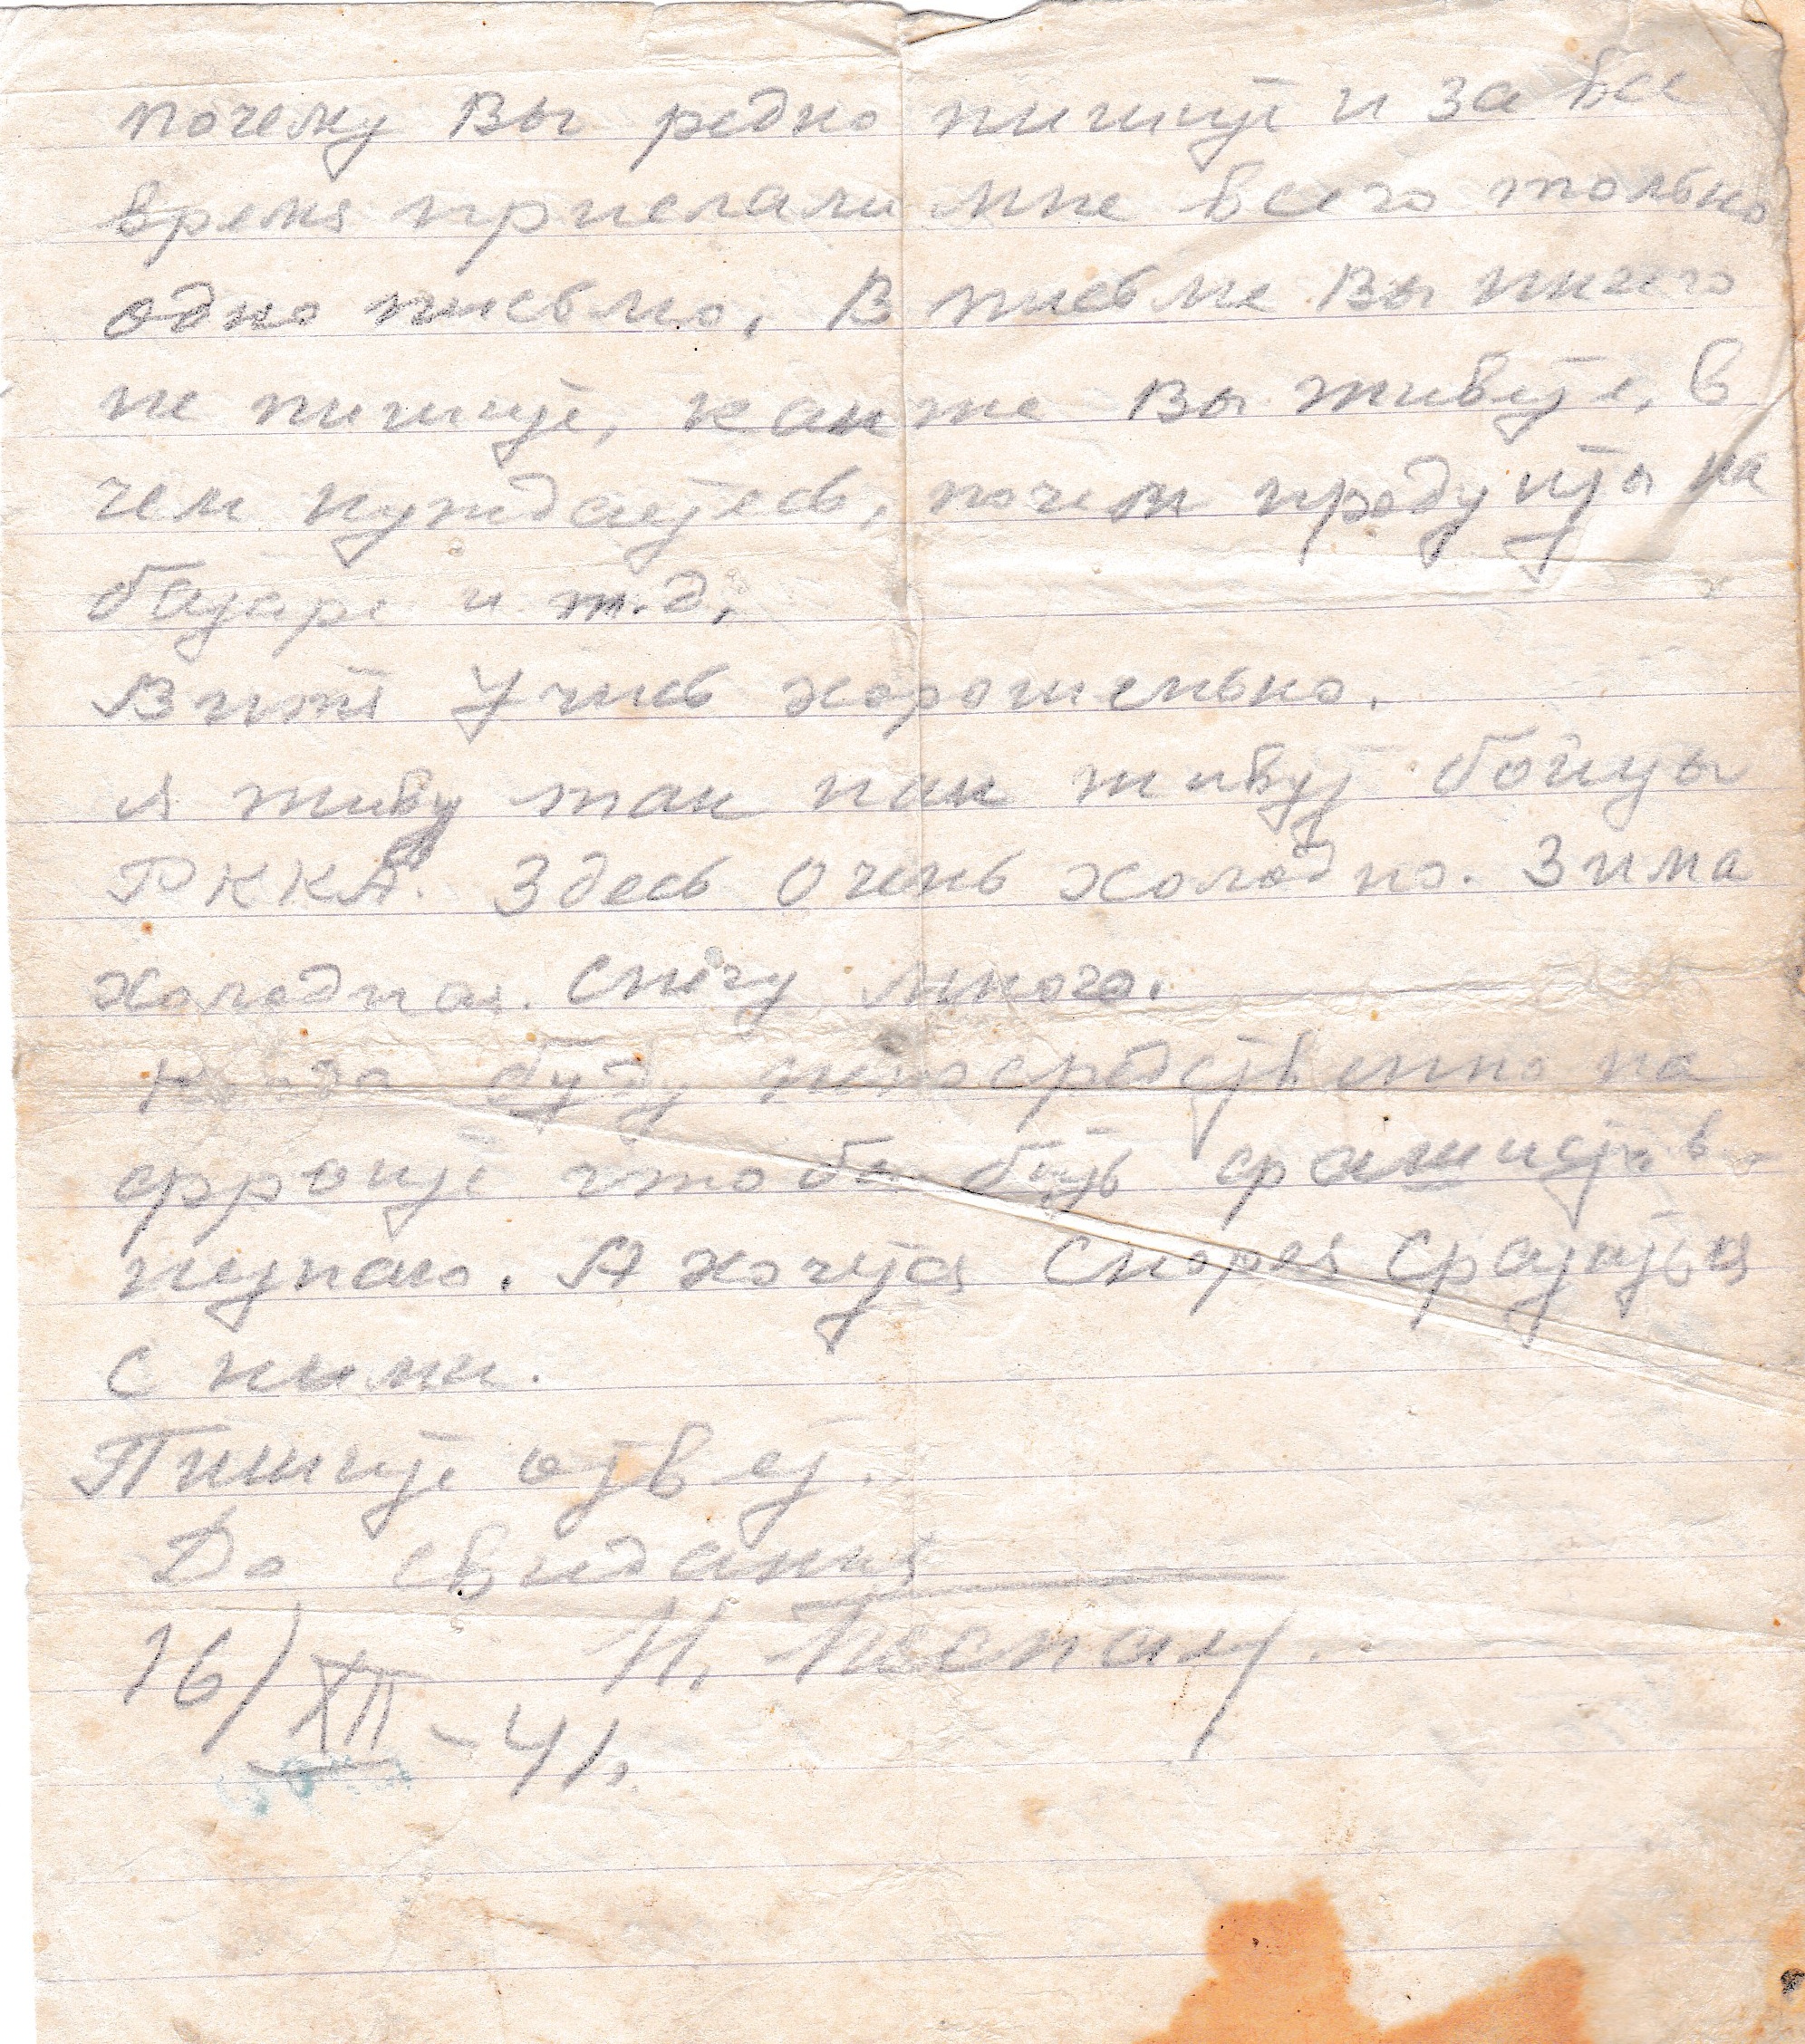 почему Вы редко пишите и за все
время прислали мне всего только
одно письмо. В письме Вы ничего
не пишите, как же Вы живете, в
чем нуждаетесь, почем продукты на
базаре и т.д.
Витя Учись хорошенько.
Я живу так как живут бойцы
РККА. Здесь очень холодно. Зима
холодная. Снегу много.
Когда буду непосредственно на
фронте чтобы бить фашистов
незнаю. А хочется скорея сразиться
с ними.
Пишите ответ.
До свидания
16/XII-41. И.